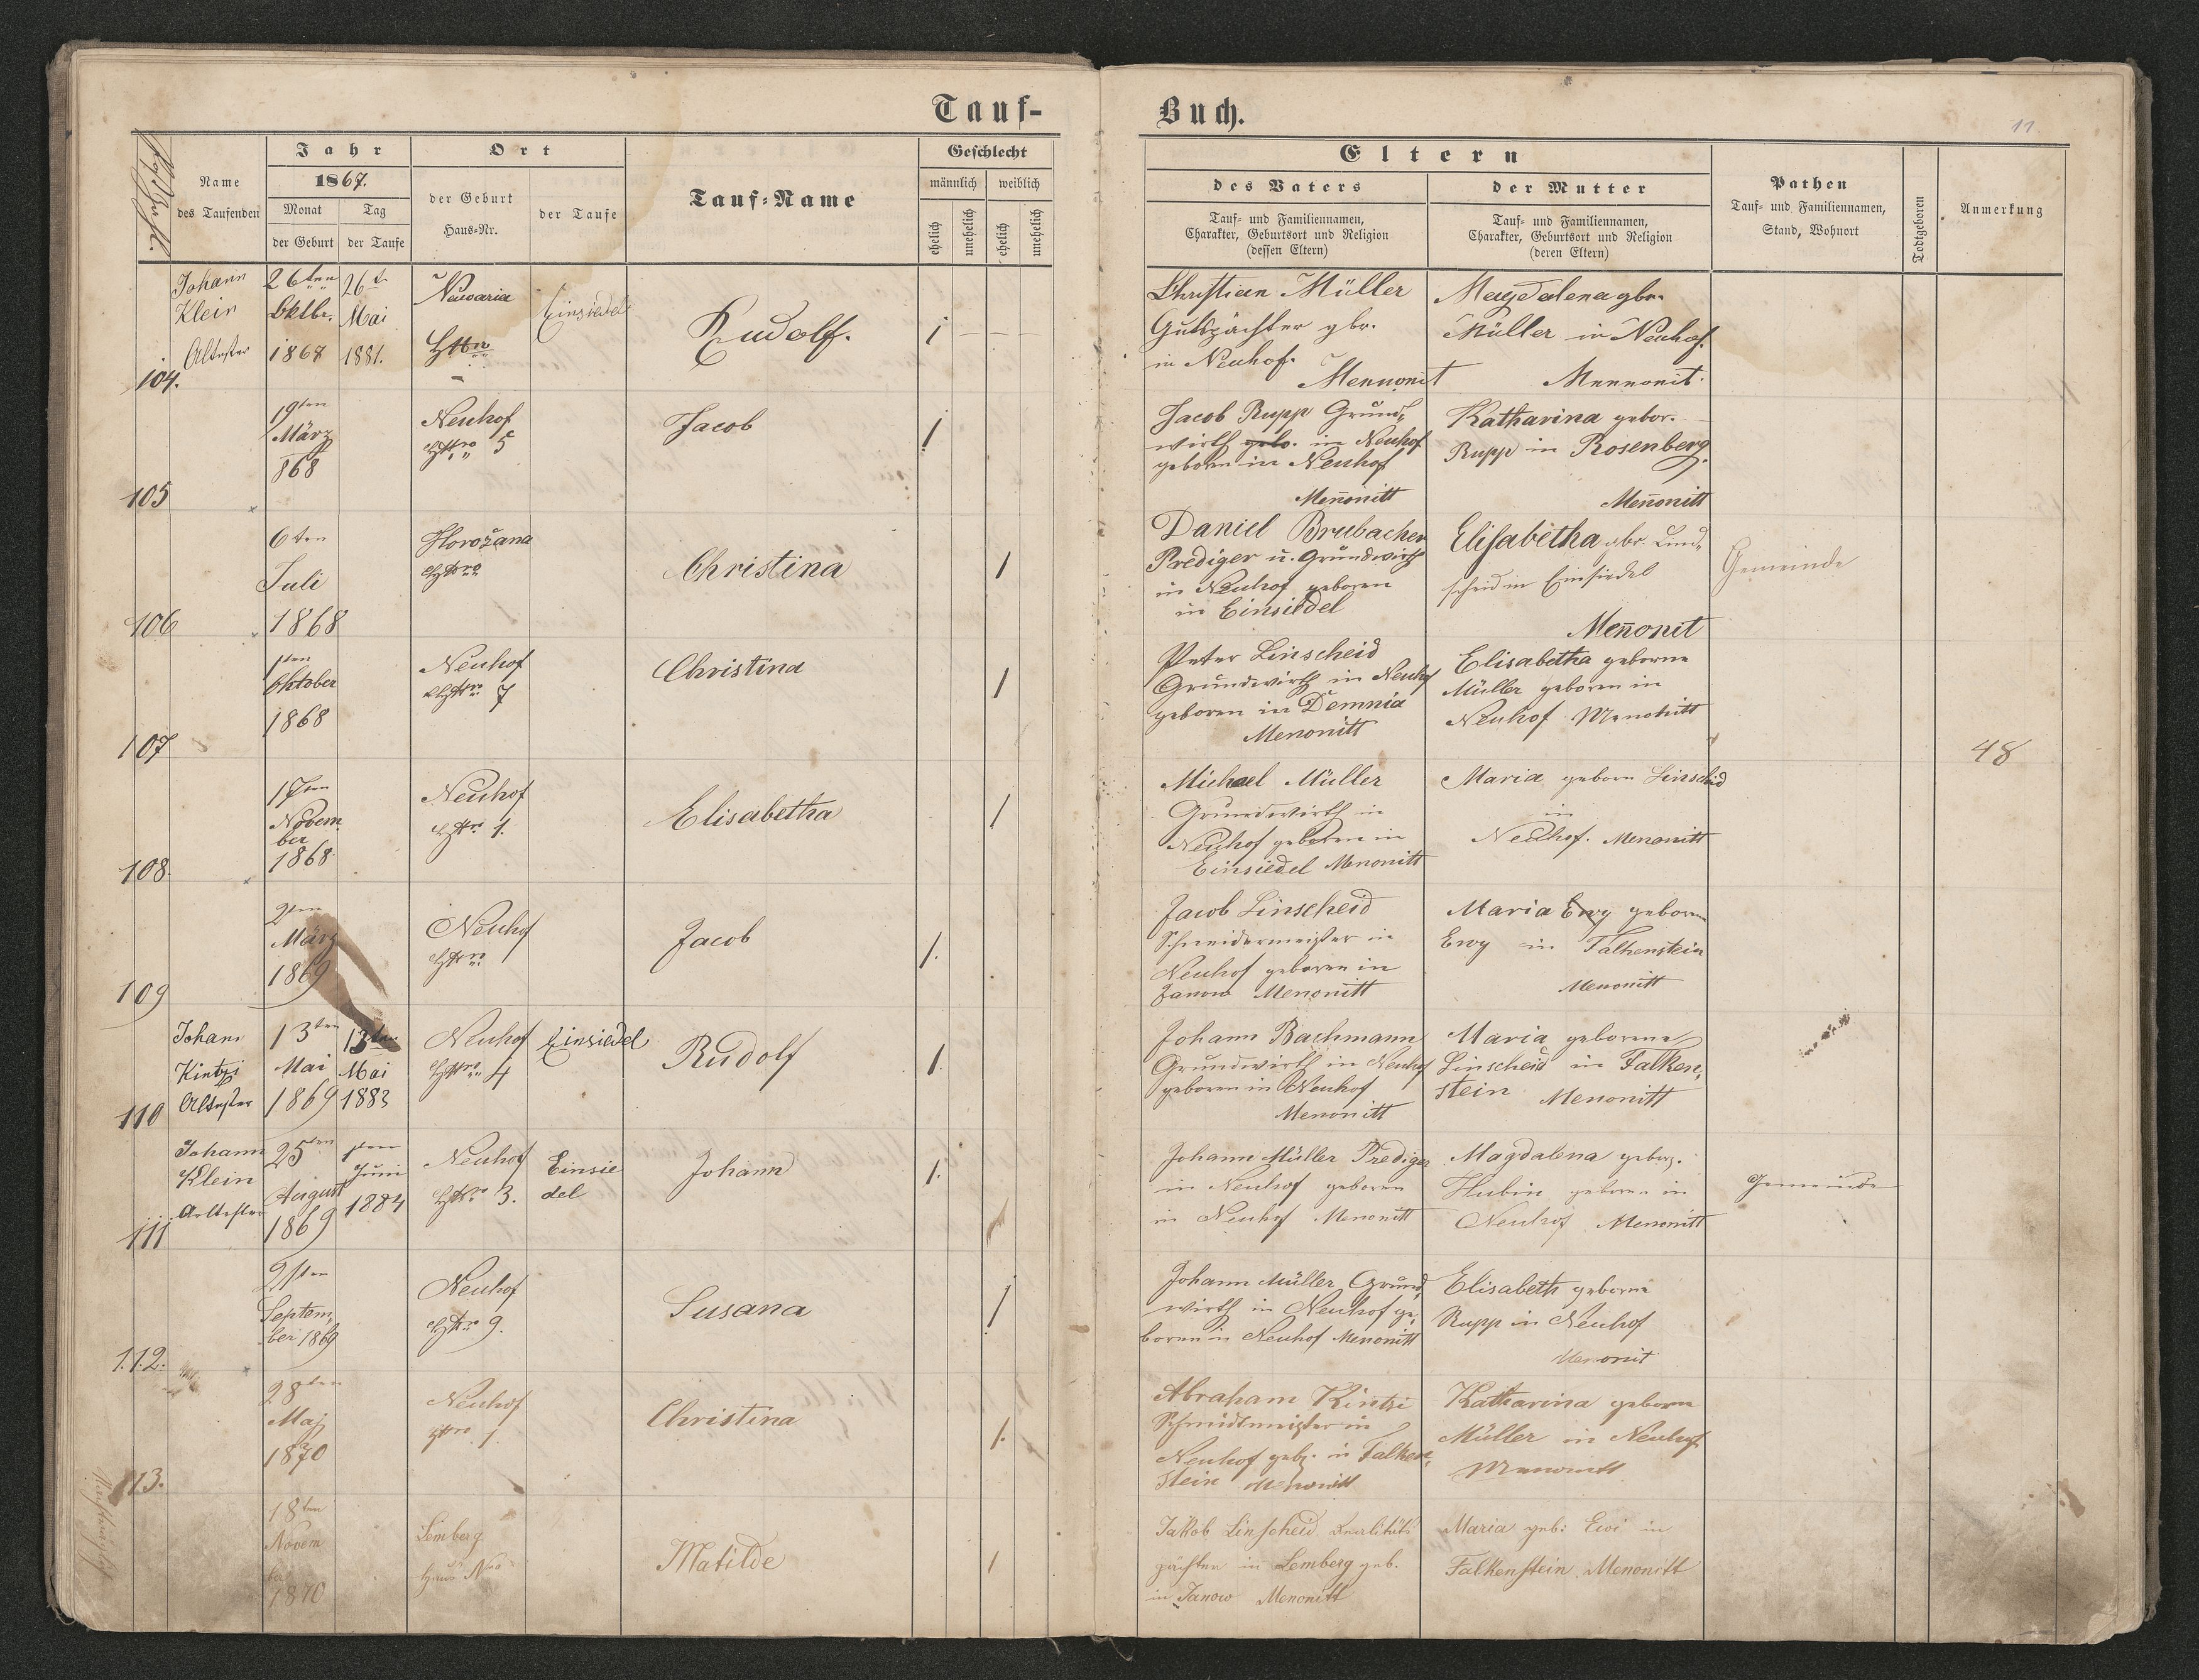 Tauf-
Buch.
11
Name
des Taufenden
Jahr
1867.
Monat
der Geburt
Tag
der Taufe
Ort
der Geburt
Haus-Nr.
der Taufe
Tauf-Name
Geschlecht
männlich
weiblich
ehelich
unehelich
ehelich
unehelich
Eltern
des Vaters
Tauf- und Familiennamen,
Charakter, Geburtsort und Religion
(dessen Eltern)
der Mutter
Tauf- und Familiennamen,
Charakter, Geburtsort und Religion
(deren Eltern)
Pathen
Tauf- und Familiennamen,
Stand, Wohnort
Todtgeboren
Anmerkung
104.
Johann
Klein
Altester
26ten
Oktbr.
1867
26t
Mai
1881.
Einsiedel
Rudolf.
Christian Müller
Gutspächter gbr.
in Neuhof.
Mennonit
Magdalena gbr.
Müller in Neuhof.
Mennonit.
105
19ten
März
868
Neuhof
5
Jacob
Jacob Rupp Grund-
wirth geb. in Neuhof
geboren in Neuhof
Meñonitt
Katharina gebor.
Rupp in Rosenberg.
Meñonitt
106
6ten
Juli
1868
Horožana
Christina
Daniel Brubacher
Prediger u. Grundwirth
in Neuhof geboren
in Einsiedel
Elisabetha gbr. Lind-
scheid in Einsiedel
Meñonit
Gemeinde
107
1ten
Oktober
1868
Neuhof
7
Christina
Peter Linscheid
Grundwirth in Neuhof
geboren in Demnia
Menonitt
Elisabetha geborne
Müller geboren in
Neuhof Menonitt
48
108.
17ten
Novem
ber
1868
Neuhof
1.
Elisabetha
Michael Müller
Grundwirth in
Neuhof geboren in
Einsiedel Menonitt
Maria geborn Linscheid
in
Neuhof. Menonitt
109
2ten
März
1869
Neuhof
Jacob
Jacob Linscheid
Schneidermeister in
Neuhof geboren in
Janow Menonitt
Maria Ewy geboren
Ewy in Falkenstein
Menonitt
110
Johann
Kintzi
Altester
13ten
Mai
1869
13ten
Mai
1883
Neuhof
4
Einsiedel
Rudolf
Johann Bachmann
Grundwirth in Neuhof
geboren in Neuhof
Menonitt
Maria geborene
Linscheid in Falken-
stein Menonitt
111
Johann
Klein
Aeltester
25ten
August
1869
1ten
Juni
1884
Neuhof
3.
Einsie
del
Johann
Johann Müller Prediger
in Neuhof geboren
in Neuhof Menonitt
Magdalena gebor.
Hubin geboren in
Neuhof Menonitt
Gemeinde
112.
21ten
Septem-
ber 1869
Neuhof
9.
Susana
Johann Müller Grund-
wirth in Neuhof ge-
boren in Neuhof Menonitt
Elisabeth geborne
Rupp in Neuhof
Menonit
113.
28ten
Maj
1870
Neuhof
1.
Christina
Abraham Kintzi
Schmidtmeister in
Neuhof geb. in Falken-
stein Menonitt
Katharina geborne
Müller in Neuhof
Menonitt
18ten
Novem
ber
1870
Lemberg
Haus Nro
Matilde
Jakob Linscheid Realitäts
pächter in Lemberg geb.
in Janow Menonitt
Maria geb: Ewi in
Falkenstein Menonitt